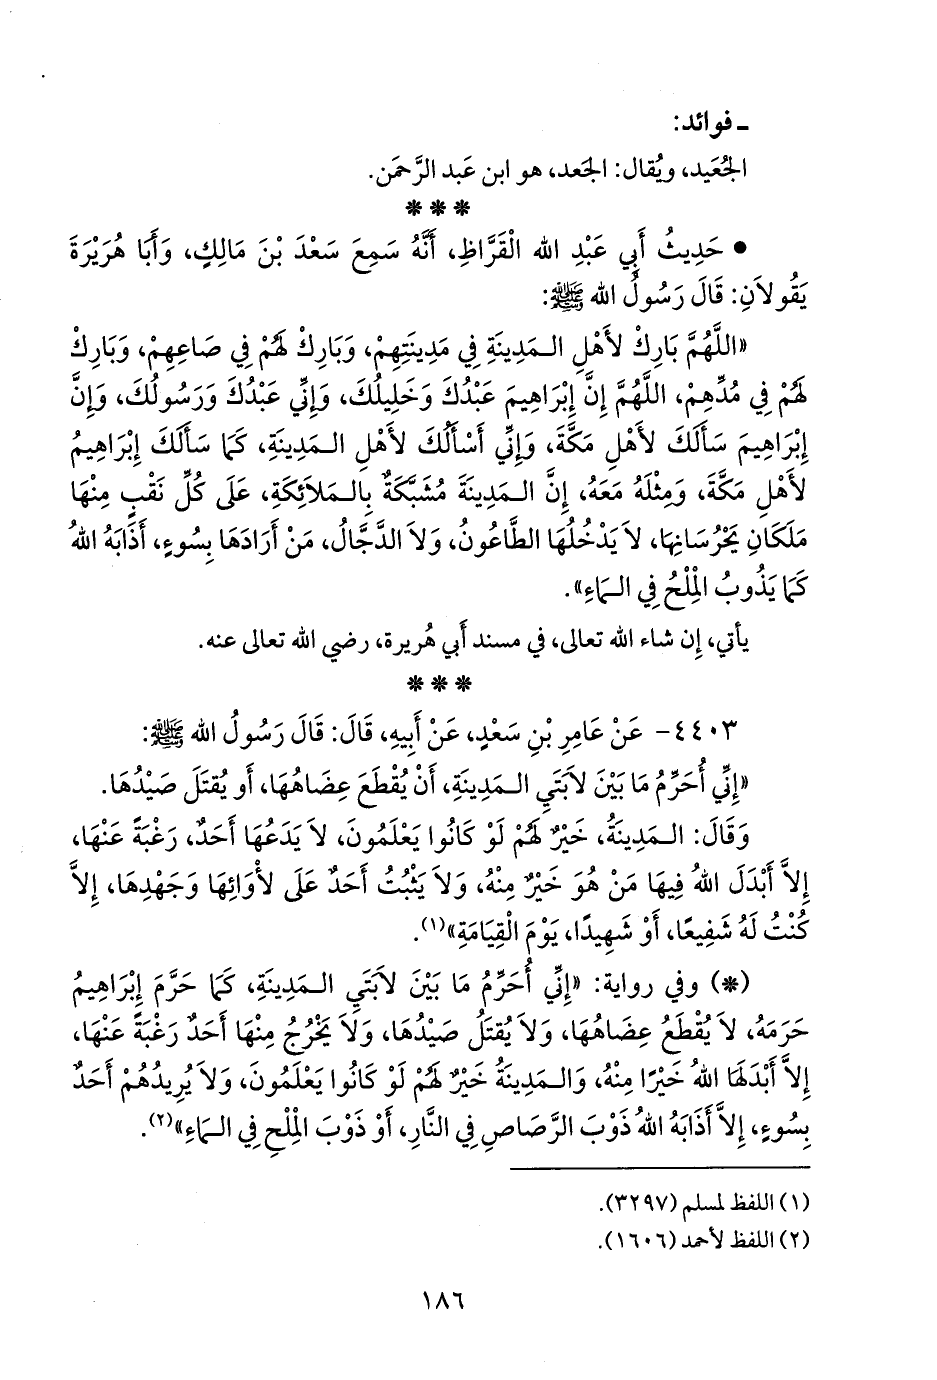 ـ فوائد:
الجُعَيد، ويُقال: الجَعد، هو ابن عَبد الرَّحمَن.
* * *
• حَدِيثُ أَبِي عَبْدِ الله الْقَرَّاظِ، أَنَّهُ سَمِعَ سَعْدَ بْنَ مَالِكٍ، وَأَبَا هُرَيْرَةَ
يَقُولاَنِ: قَالَ رَسُولُ الله ﷺ:
«اللَّهُمَّ بَارِكْ لأَهْلِ الـمَدِينَةِ فِي مَدِينَتِهِمْ، وَبَارِكْ لَهُمْ فِي صَاعِهِمْ، وَبَارِكْ
لَهُمْ فِي مُدِّهِمْ، اللَّهُمَّ إِنَّ إِبْرَاهِيمَ عَبْدُكَ وَخَلِيلُكَ، وَإِنِّي عَبْدُكَ وَرَسُولُكَ، وَإِنَّ
إِبْرَاهِيمَ سَأَلَكَ لأَهْلِ مَكَّةَ، وَإِنِّي أَسْأَلُكَ لأَهْلِ الـمَدِينَةِ، كَمَا سَأَلَكَ إِبْرَاهِيمُ
لأَهْلِ مَكَّةَ، وَمِثْلَهُ مَعَهُ، إِنَّ الـمَدِينَةَ مُشَبَّكَةٌ بِالـمَلاَئِكَةِ، عَلَى كُلِّ نَقْبٍ مِنْهَا
مَلَكَانِ يَحْرُسَانِهَا، لاَ يَدْخُلُهَا الطَّاعُونُ، وَلاَ الدَّجَّالُ، مَنْ أَرَادَهَا بِسُوءٍ، أَذَابَهُ اللهُ
كَمَا يَذُوبُ الْمِلْحُ فِي الـمَاءِ».
يأتي، إِن شاء الله تعالى، في مسند أَبي هُريرة، رضي الله تعالى عنه.
* * *
٤٤٠٣- عَنْ عَامِرِ بْنِ سَعْدٍ، عَنْ أَبِيهِ، قَالَ: قَالَ رَسُولُ الله ﷺ:
«إِنِّي أُحَرِّمُ مَا بَيْنَ لاَبَتَيِ الـمَدِينَةِ، أَنْ يُقْطَعَ عِضَاهُهَا، أَو يُقتَلَ صَيْدُهَا.
وَقَالَ: الـمَدِينَةُ، خَيْرٌ لَهُمْ لَوْ كَانُوا يَعْلَمُونَ، لاَ يَدَعُهَا أَحَدٌ، رَغْبَةً عَنْهَا،
إِلاَّ أَبْدَلَ اللهُ فِيهَا مَنْ هُوَ خَيْرٌ مِنْهُ، وَلاَ يَثْبُتُ أَحَدٌ عَلَى لأْوَائِهَا وَجَهْدِهَا، إِلاَّ
كُنْتُ لَهُ شَفِيعًا، أَوْ شَهِيدًا، يَوْمَ الْقِيَامَةِ»(١).
(*) وفي رواية: «إِنِّي أُحَرِّمُ مَا بَيْنَ لاَبَتَيِ الـمَدِينَةِ، كَمَا حَرَّمَ إِبْرَاهِيمُ
حَرَمَهُ، لاَ يُقْطَعُ عِضَاهُهَا، وَلاَ يُقتَلُ صَيْدُهَا، وَلاَ يَخْرُجُ مِنْهَا أَحَدٌ رَغْبَةً عَنْهَا،
إِلاَّ أَبْدَلَهَا اللهُ خَيْرًا مِنْهُ، وَالـمَدِينَةُ خَيْرٌ لَهُمْ لَوْ كَانُوا يَعْلَمُونَ، وَلاَ يُرِيدُهُمْ أَحَدٌ
بِسُوءٍ، إِلاَّ أَذَابَهُ اللهُ ذَوْبَ الرَّصَاصِ فِي النَّارِ، أَوْ ذَوْبَ الْمِلْحِ فِي الـمَاءِ»(٢).
(١) اللفظ لمسلم (٣٢٩٧).
(٢) اللفظ لأحمد (١٦٠٦).
١٨٦